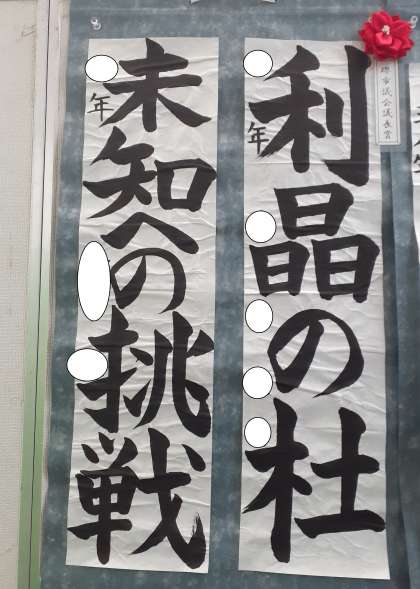 堺市議会議長賞
利晶の杜
年
未知への挑戦
年